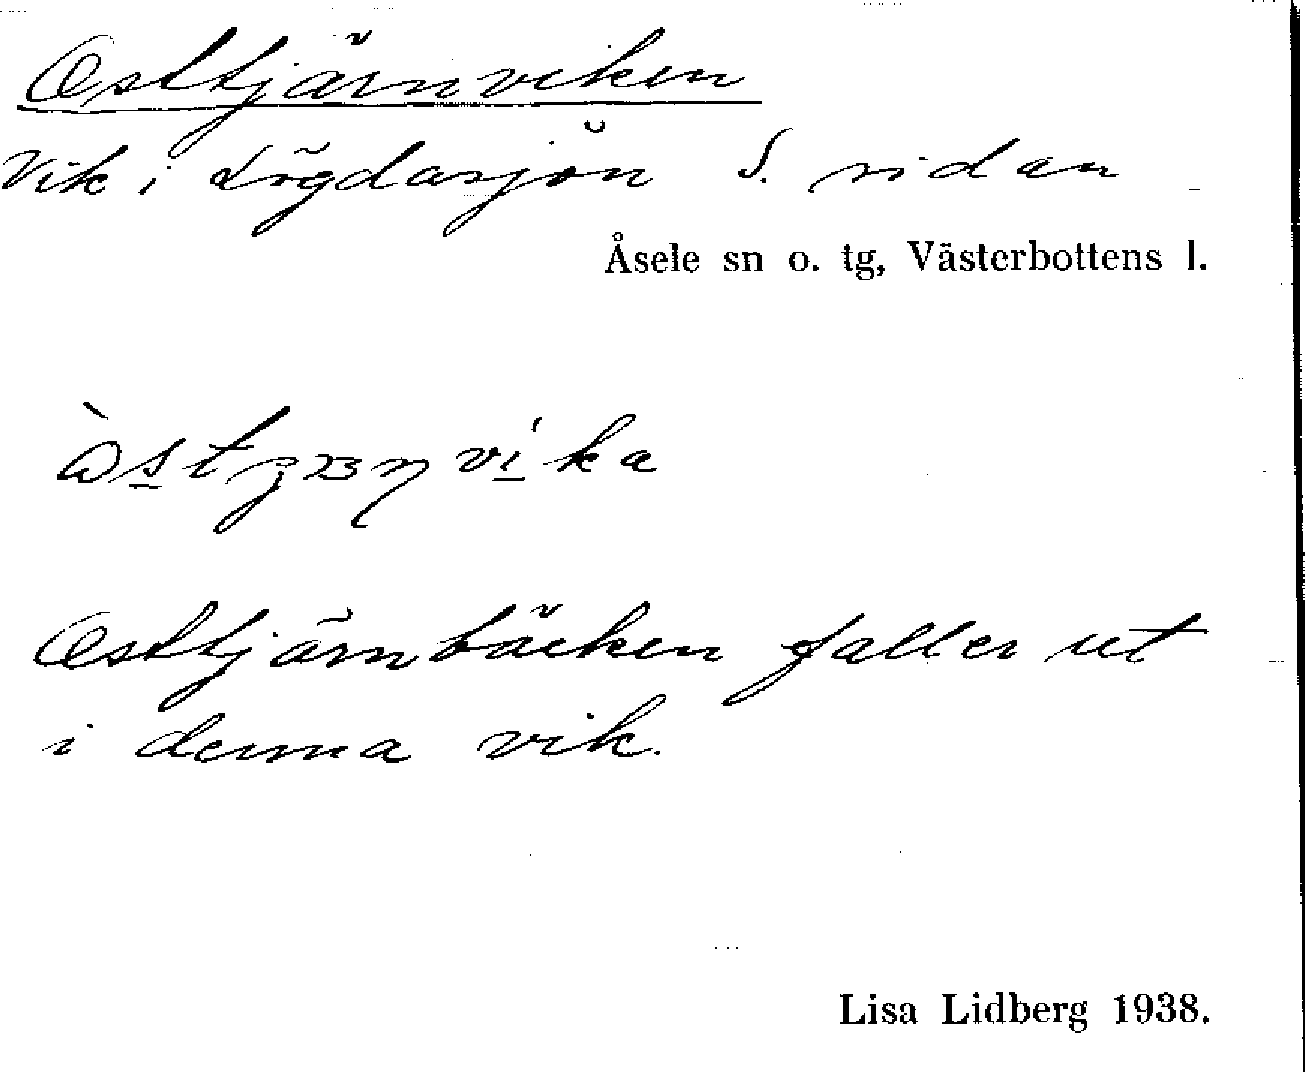 Osttjärnviken
Vik i Lögdasjön S. sidan
Åsele sn o. tg, Västerbottens l.
Osttjärnbäcken faller ut
i denna vik.
Lisa Lidberg 1938.